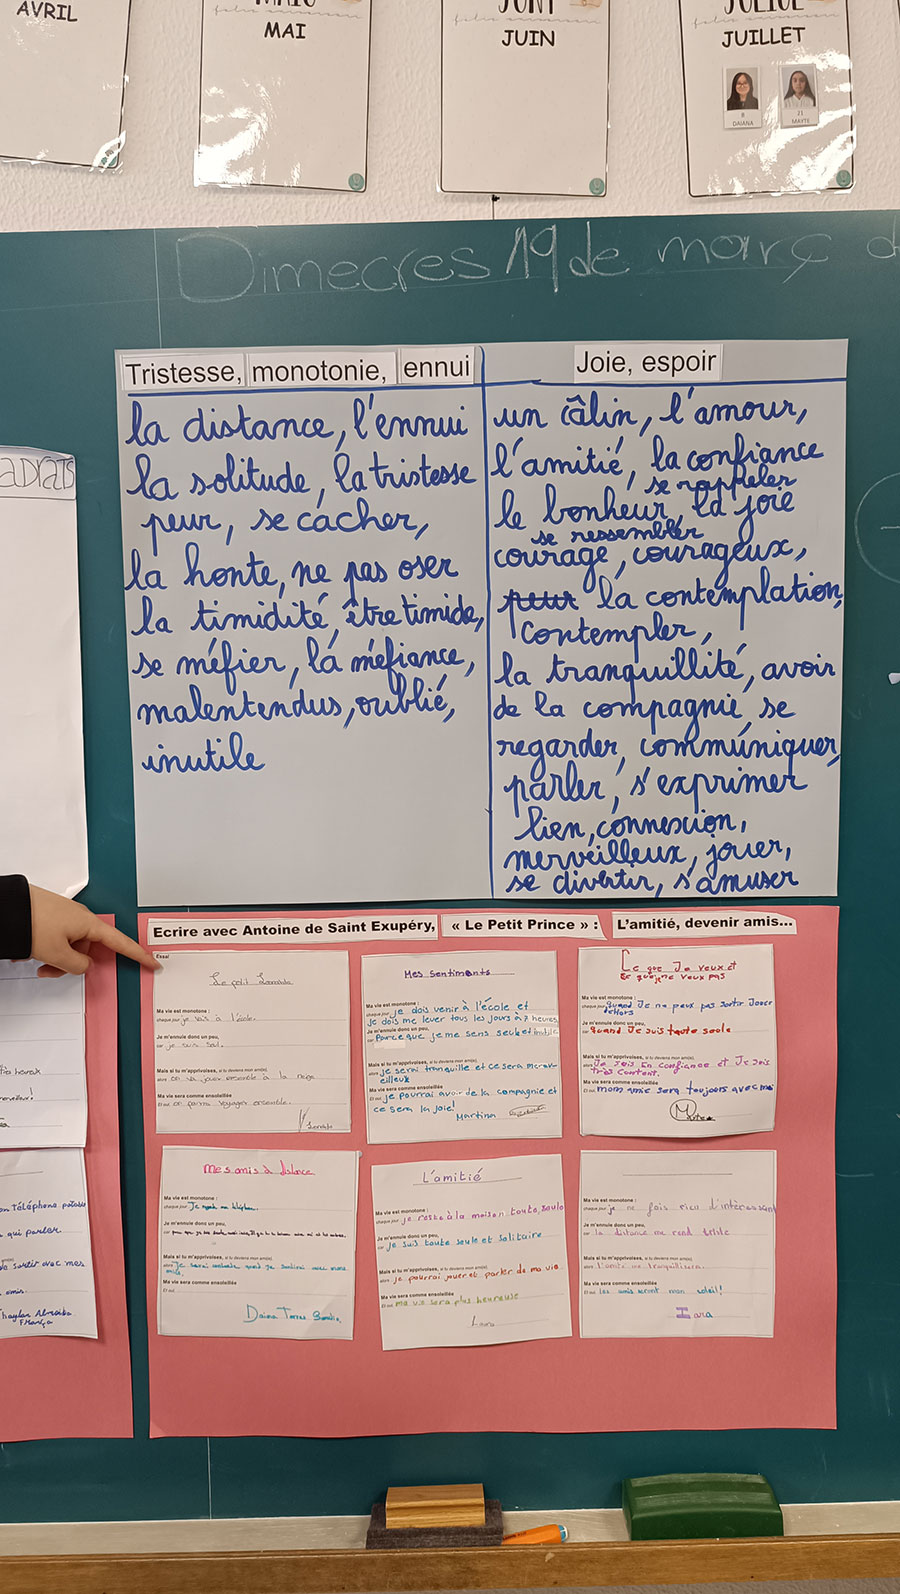 AVRIL
MAI
JUIN
JUILLET
8
DAIANA
21
MAYTE
Dimecres 19 de març d
Tristesse, monotonie, ennui
la distance, l'ennui
la solitude, la tristesse
peur, se cacher,
la honte, ne pas oser
la timidité, être timide,
se méfier, la méfiance,
malentendus, oublié,
inutile
Joie, espoir
un câlin, l'amour,
l'amitié, la confiance
se rappeler
le bonheur, la joie
se ressembler
courage, courageux,
peur la contemplation,
contempler,
la tranquillité, avoir
de la compagnie, se
regarder, communiquer,
parler, s'exprimer
lien, connexion,
merveilleux, jouer,
se divertir, s'amuser
Ecrire avec Antoine de Saint Exupéry, « Le Petit Prince » : L'amitié, devenir amis...
Essai
Le petit
Ma vie est monotone :
chaque jour je vais à l'école.
Je m'ennuie donc un peu,
car je suis seul.
Mais si tu m'apprivoises, si tu deviens mon ami(e),
alors on va jouer ensemble à la neige
Ma vie sera comme ensoleillée
Et oui on pourra voyager ensemble.
Mes sentiments
Ma vie est monotone :
chaque jour je dois venir à l'école et
je dois me lever tous les jours à 7 heures
Je m'ennuie donc un peu,
car Parce que je me sens seule et inutile
Mais si tu m'apprivoises, si tu deviens mon ami(e),
alors je serai tranquille et ce sera merv-
eilleux
Ma vie sera comme ensoleillée
Et oui je pourrai avoir de la compagnie et
ce sera la joie!
Martina
Ce que Je veux et
ce que je ne veux pas
Ma vie est monotone :
chaque jour quand Je ne peux pas sortir Jouer
dehors
Je m'ennuie donc un peu,
car quand Je suis toute seule
Mais si tu m'apprivoises, si tu deviens mon ami(e),
alors Je suis En confiance et Je suis
très content.
Ma vie sera comme ensoleillée
Et oui mon amie sera toujours avec moi
Mes amis à distance
Ma vie est monotone :
chaque jour Je
Je m'ennuie donc un peu,
car
Mais si tu m'apprivoises, si tu deviens mon ami(e),
alors Je serai contente quand je sortirai avec mes
amis.
Ma vie sera comme ensoleillée
Et oui
Daiana Torres
L'amitié
Ma vie est monotone :
chaque jour je reste à la maison toute seule
Je m'ennuie donc un peu,
car je suis toute seule et solitaire
Mais si tu m'apprivoises, si tu deviens mon ami(e),
alors je pourrai jouer et parler de ma vie.
Ma vie sera comme ensoleillée
Et oui ma vie sera plus heureuse
Laura
Ma vie est monotone :
chaque jour je ne fais rien d'intéressant
Je m'ennuie donc un peu,
car la distance me rend triste
Mais si tu m'apprivoises, si tu deviens mon ami(e),
alors l'amitié me tranquillisera.
Ma vie sera comme ensoleillée
Et oui les amis seront mon soleil!
Iara
qui parler
sortir avec mes
amis.